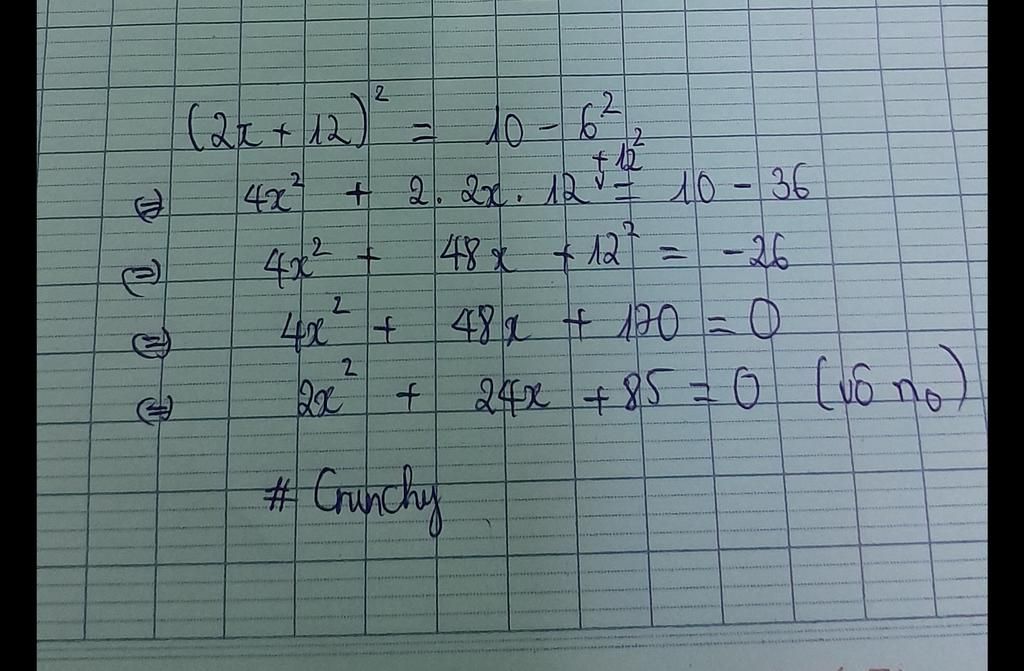 (2x + 12)² = 10 - 6²
⇔ 4x² + 2. 2x. 12 + 12² = 10 - 36
⇔ 4x² + 48x + 12² = -26
⇔ 4x² + 48x + 170 = 0
⇔ 2x² + 24x + 85 = 0 (vô no)
# Crunchy